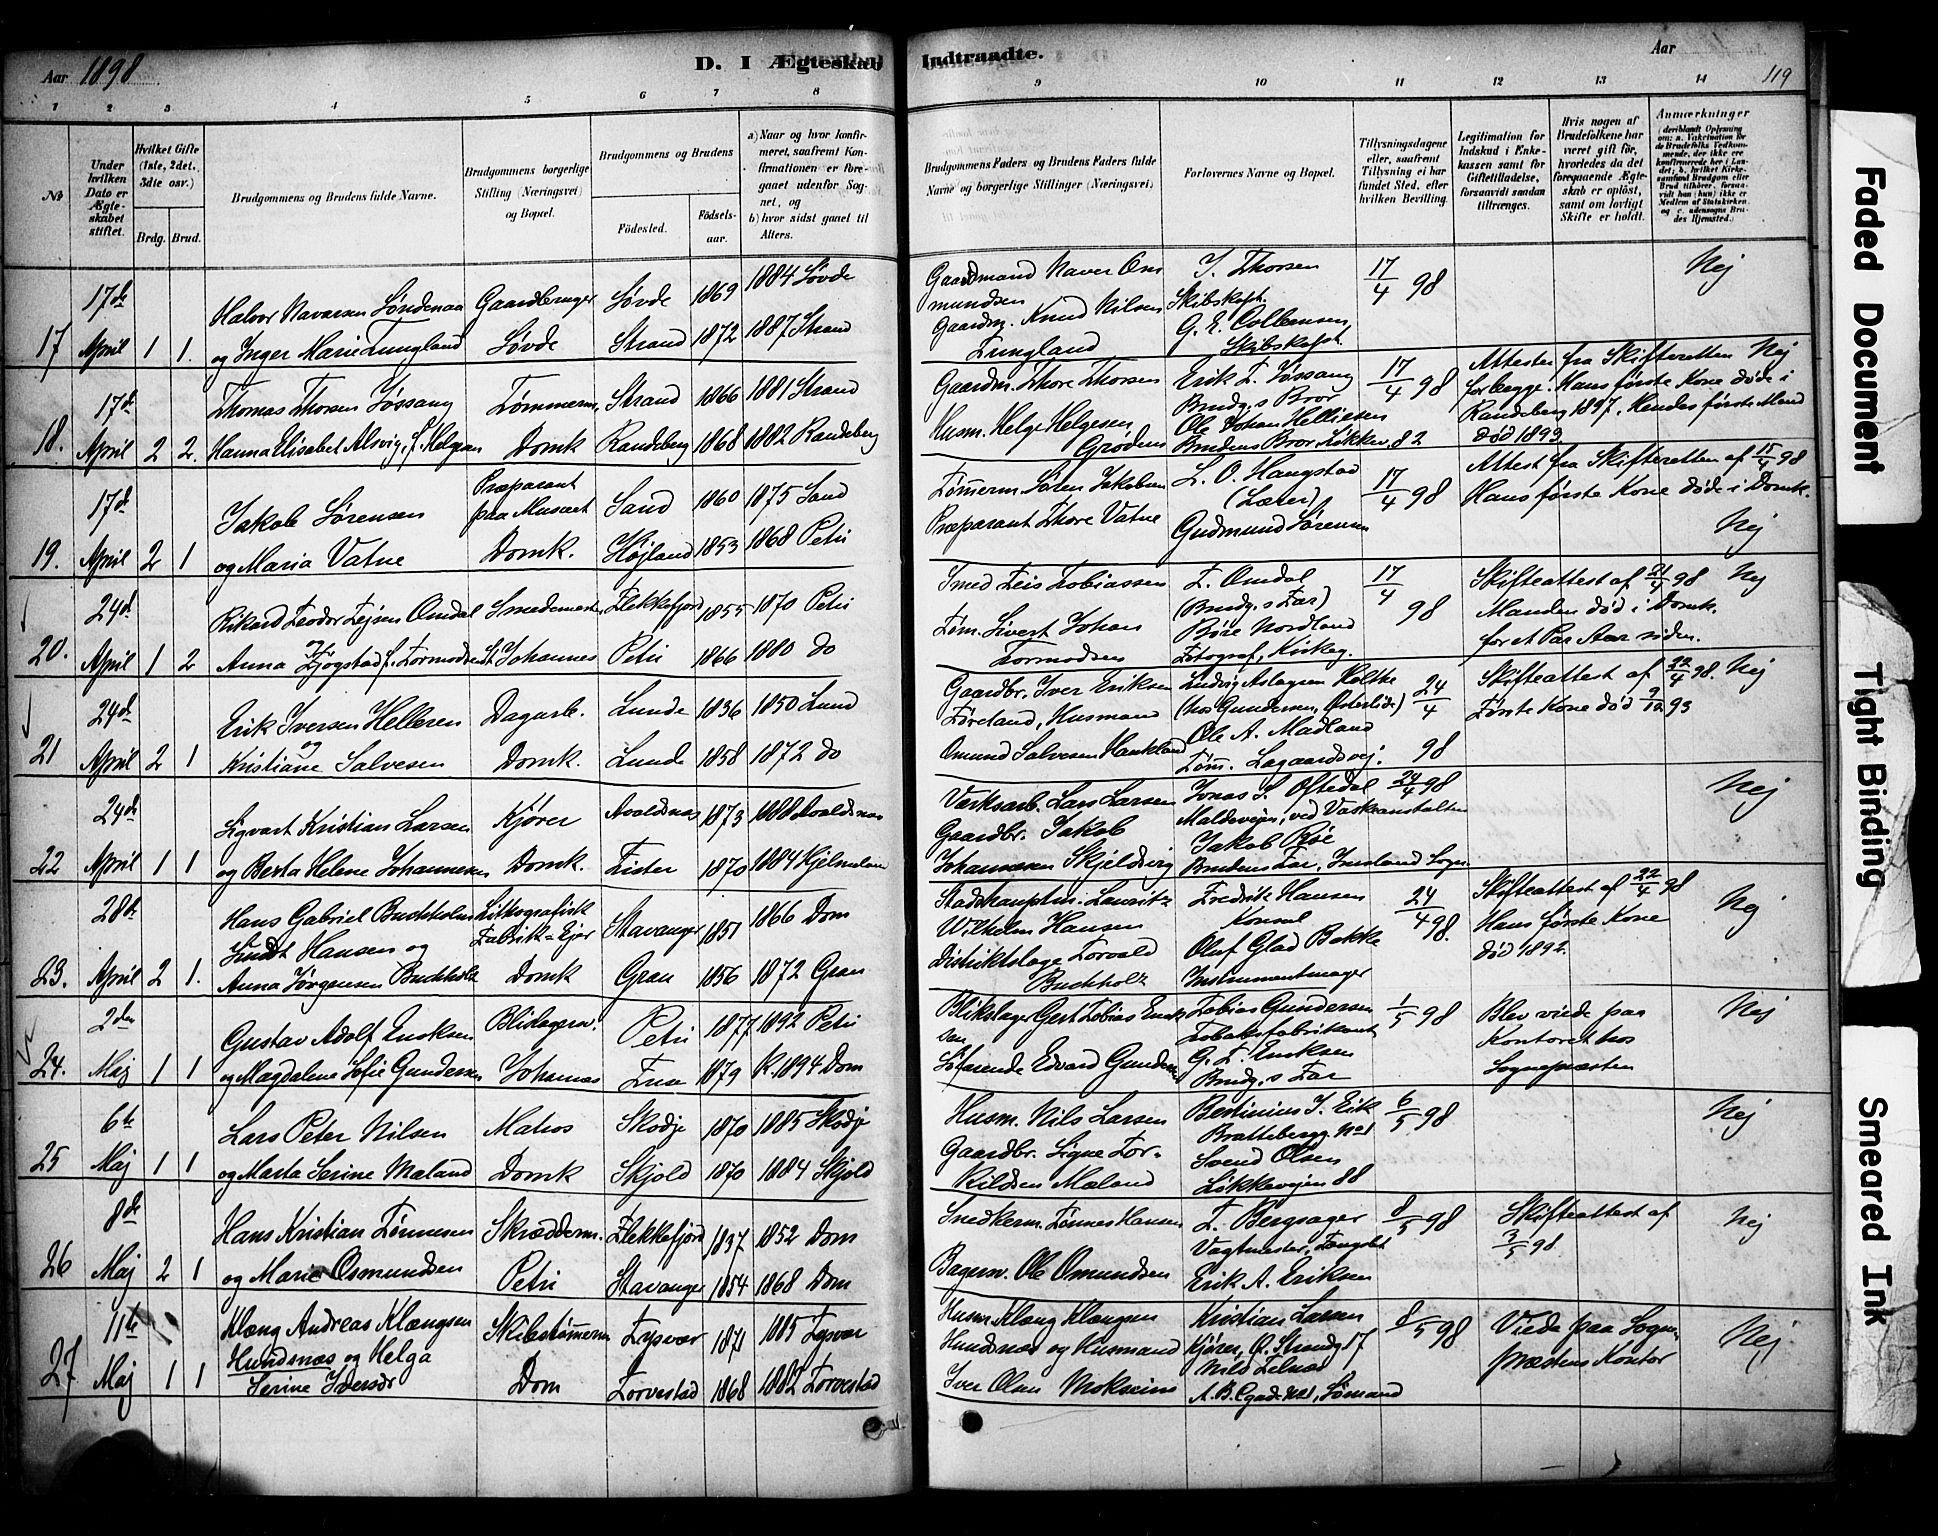 Aar 1898
D. I Ægteskab Indtraadte.
Aar
119
1 2 3 4 5 6 7 8 9 10 11 12 13 14
№
Under hvilken Dato er Ægteskabet stiftet.
Hvilket Gifte (1ste, 2det, 3die osv.)
Brdg. Brud.
Brudgommens og Brudens fulde Navne.
Brudgommens borgerlige Stilling (Næringsvei) og Bopæl.
Brudgommens og Brudens
Födested.
Födselsaar.
a) Naar og hvor konfirmeret, saafremt Konfirmationen er foregaaet udenfor Sognet, og
b) hvor sidst gaaet til Alters.
Brudgommens Faders og Brudens Faders fulde Navne og borgerlige Stillinger (Næringsvei)
Forlovernes Navne og Bopæl.
Tillysningsdagene eller, saafremt Tillysning ei har fundet Sted, efter hvilken Bevilling.
Legitimation for Indskud i Enkekassen samt for Giftetilladelse, forsaavidt saadan tiltrænges.
Hvis nogen af Brudefolkene har været gift för, hvorledes da det foregaaende Ægteskab er oplöst, samt om lovligt Skifte er holdt.
Anmærkninger
17 17de April 1 1.
Halvor Navarsen Söndenaa
og Inger Marie Tungland
Gaardbruger
Søvde
Søvde 1869 1884 Søvde
Strand 1872 1887 Strand
Gaardmand Naver Om
mundsen
Gaardm. Knud Nilsen
Tungland
T. Thorsen
Skibskapt.
G. E. Colbensen
Skibskapt.
17/4 98
Nej
18. 17de April 2 2.
Thomas Thorsen Jøssang
Hanna Elisabet Alsvig, f. Helgesen
Tømmerm.
Domk
Strand 1866 1881 Strand
Randeberg 1868 1882 Randeberg
Gaardm. Thore Thorsen
Husm. Helge Helgesen
Grødem
Erik T. Jøssang
Brudg.s Bror
Ole Johan Helliesen
Brudens Bror Løkkev. 82
17/4 98
Attester fra Skifteretten
for begge. Hans første Kone døde i
Randeberg 1897. Hendes første Mand
død 1893
Nej
19. 17de April 2 1
Jakob Sørensen
og Maria Vatne
Præparant
paa Museet
Domk.
Sand 1860 1875 Sand
Højland 1853 1868 Petri
Tømmerm. Søren Jakobsen
Præparant Thore Vatne
L. O. Hangstad
(Lærer)
Gudmund Sørensen
17/4 98
Attest fra Skifteretten af 15/4 98
Hans første Kone døde i Domk.
Nej
20. 24de April 1 2
Rikard Teodor Tejsen Omdal
Anna Tjøgstad f. Tormodsen
Smedemester
St. Johannes
Flekkefjord 1855 1870 Petri
Petri 1866 1880 do
Smed Teis Tobiassen
Tøm. Sivert Johan
Tormodsen
T. Omdal
(Brudg.s Far)
Børe Nordland
Fotograf, Kirkeg.
17/4 98
Skifteattest af 21/4 98
Manden død i Domk.
for et Par Aar siden.
Nej
21 24de April 2 1
Erik Iversen Helleren
og
Kristiane Salvesen
Dagarb.
Domk.
Lunde 1836 1850 Lund
Lunde 1858 1872 do
Gaardbr. Iver Eriksen
Føreland, Husmand
Omund Salvesen Haukland
Ludvig Aslagsen Holske
(hos Gundersen, Østerlide)
Ole A. Madland
Tøm. Lagaardsvej.
24/4 98
Skifteattest af 22/4 98.
Første Kone død 9/12 93
Nej
22 24de April 1 1
Sigvart Kristian Larsen
og Berta Helene Johannesen
Kjører
Domk.
Avaldsnes 1873 1888 Avaldsnes
Fister 1870 1884 Hjelmeland
Værksarb. Lars Larsen
Gaardbr. Jakob
Johannesen Skjeldvig
Jonas S. Oftedal
Maldevejen, ved Vaskeanstalten
Jakob Røe
24/4 98
Nej
23. 28de April 2 1.
Hans Gabriel Buchholm
Knudt Hansen og
Anna Jørgensen Buchholt
Lithografisk
Fabrik-Ejer
Domk
Stavanger 1851 1866 Dom
Gran 1856 1872 Gran
Stadshauptm. Lauritz
Wilhelm Hansen
Distriktslæge Torvald
Buchholtz
Fredrik Hansen
Konsul
Oluf Glad Bakke
Instrumentmager
24/4 98.
Skifteattest af 22/4 98
Hans første Kone
død 1892.
Nej
24. 2den Maj 1 1
Gustav Adolf Enoksen
og Magdalene Sofie Gundersen
Blikslagersv.
Johannes
Petri 1877 1892 Petri
1879 K. 1894 Dom
Blikslager Gert Tobias Enok
sen
Søfarende Edvard Gundersen
Tobias Gundersen
Tobaksfabrikant
G. T. Enoksen
Brudg.s Far
1/5 98
Blev viede paa
Kontoret hos
Sognepræsten
Nej
25 6te Maj 1 1
Lars Peter Nilsen
og Marta Serine Mæland
Matros
Domk
Skodje 1870 1885 Skodje
Skjold 1870 1884 Skjold
Husm. Nils Larsen
Gaardbr. Signe Tor-
kildsen Mæland
Bertinius J. Eik
Brattebergg. No 1
Svend Olsen
Løkkevejen 88
6/5 98
Nej
26 8de Maj 2 1
Hans Kristian Tønnesen
og Marie Osmundsen
Skræderm.
Petri
Flekkefjord 1837 1852 Dom
Stavanger 1854 1868 Dom
Snedkerm. Tønnes Hansen
Bagersv. Ole Omundsen
T. Bergsager
Vagtmester, Fængslet
Erik A. Eriksen
8/5 98
Skifteattest af
3/5 98.
Nej
27 11te Maj 1 1
Klæng Andreas Klængsen
Hundsnæs og Helga
Serine Iversdr
Skibstømmerm
Dom
Tysvær 1871 1885 Tysvær
Torvestad 1868 1882 Torvestad
Husm. Klæng Klængsen
Hundsnæs og Husmand
Iver Olsen Mokseim
Kristian Larsen
Kjører, Ø. Strandg 17
Nils Felnas
A. B. C gade No 1, Sømand
8/5 98
Viede paa Sogne-
præstens Kontor
Nej
Faded Document
Tight Binding
Smeared Ink